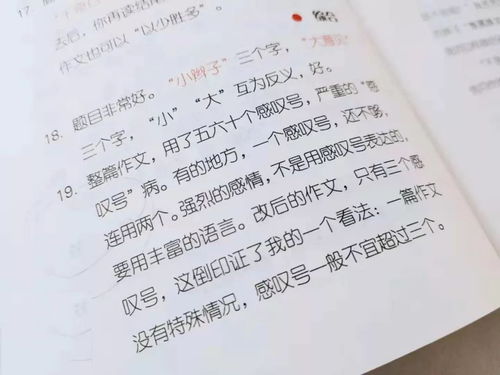 17.
去后，你再读结尾
作文也可以“以少胜多”。
18. 题目非常好。“小辫子”三个字，“大
三个字，“小”“大”互为反义，好。
19. 整篇作文，用了五六十个感叹号，严重的“感
叹号”病。有的地方，一个感叹号，还不够，
连用两个。强烈的感情，不是用感叹号表达的，
要用丰富的语言。改后的作文，只有三个感
叹号，这倒印证了我的一个看法：一篇作文
没有特殊情况，感叹号一般不宜超过三个。